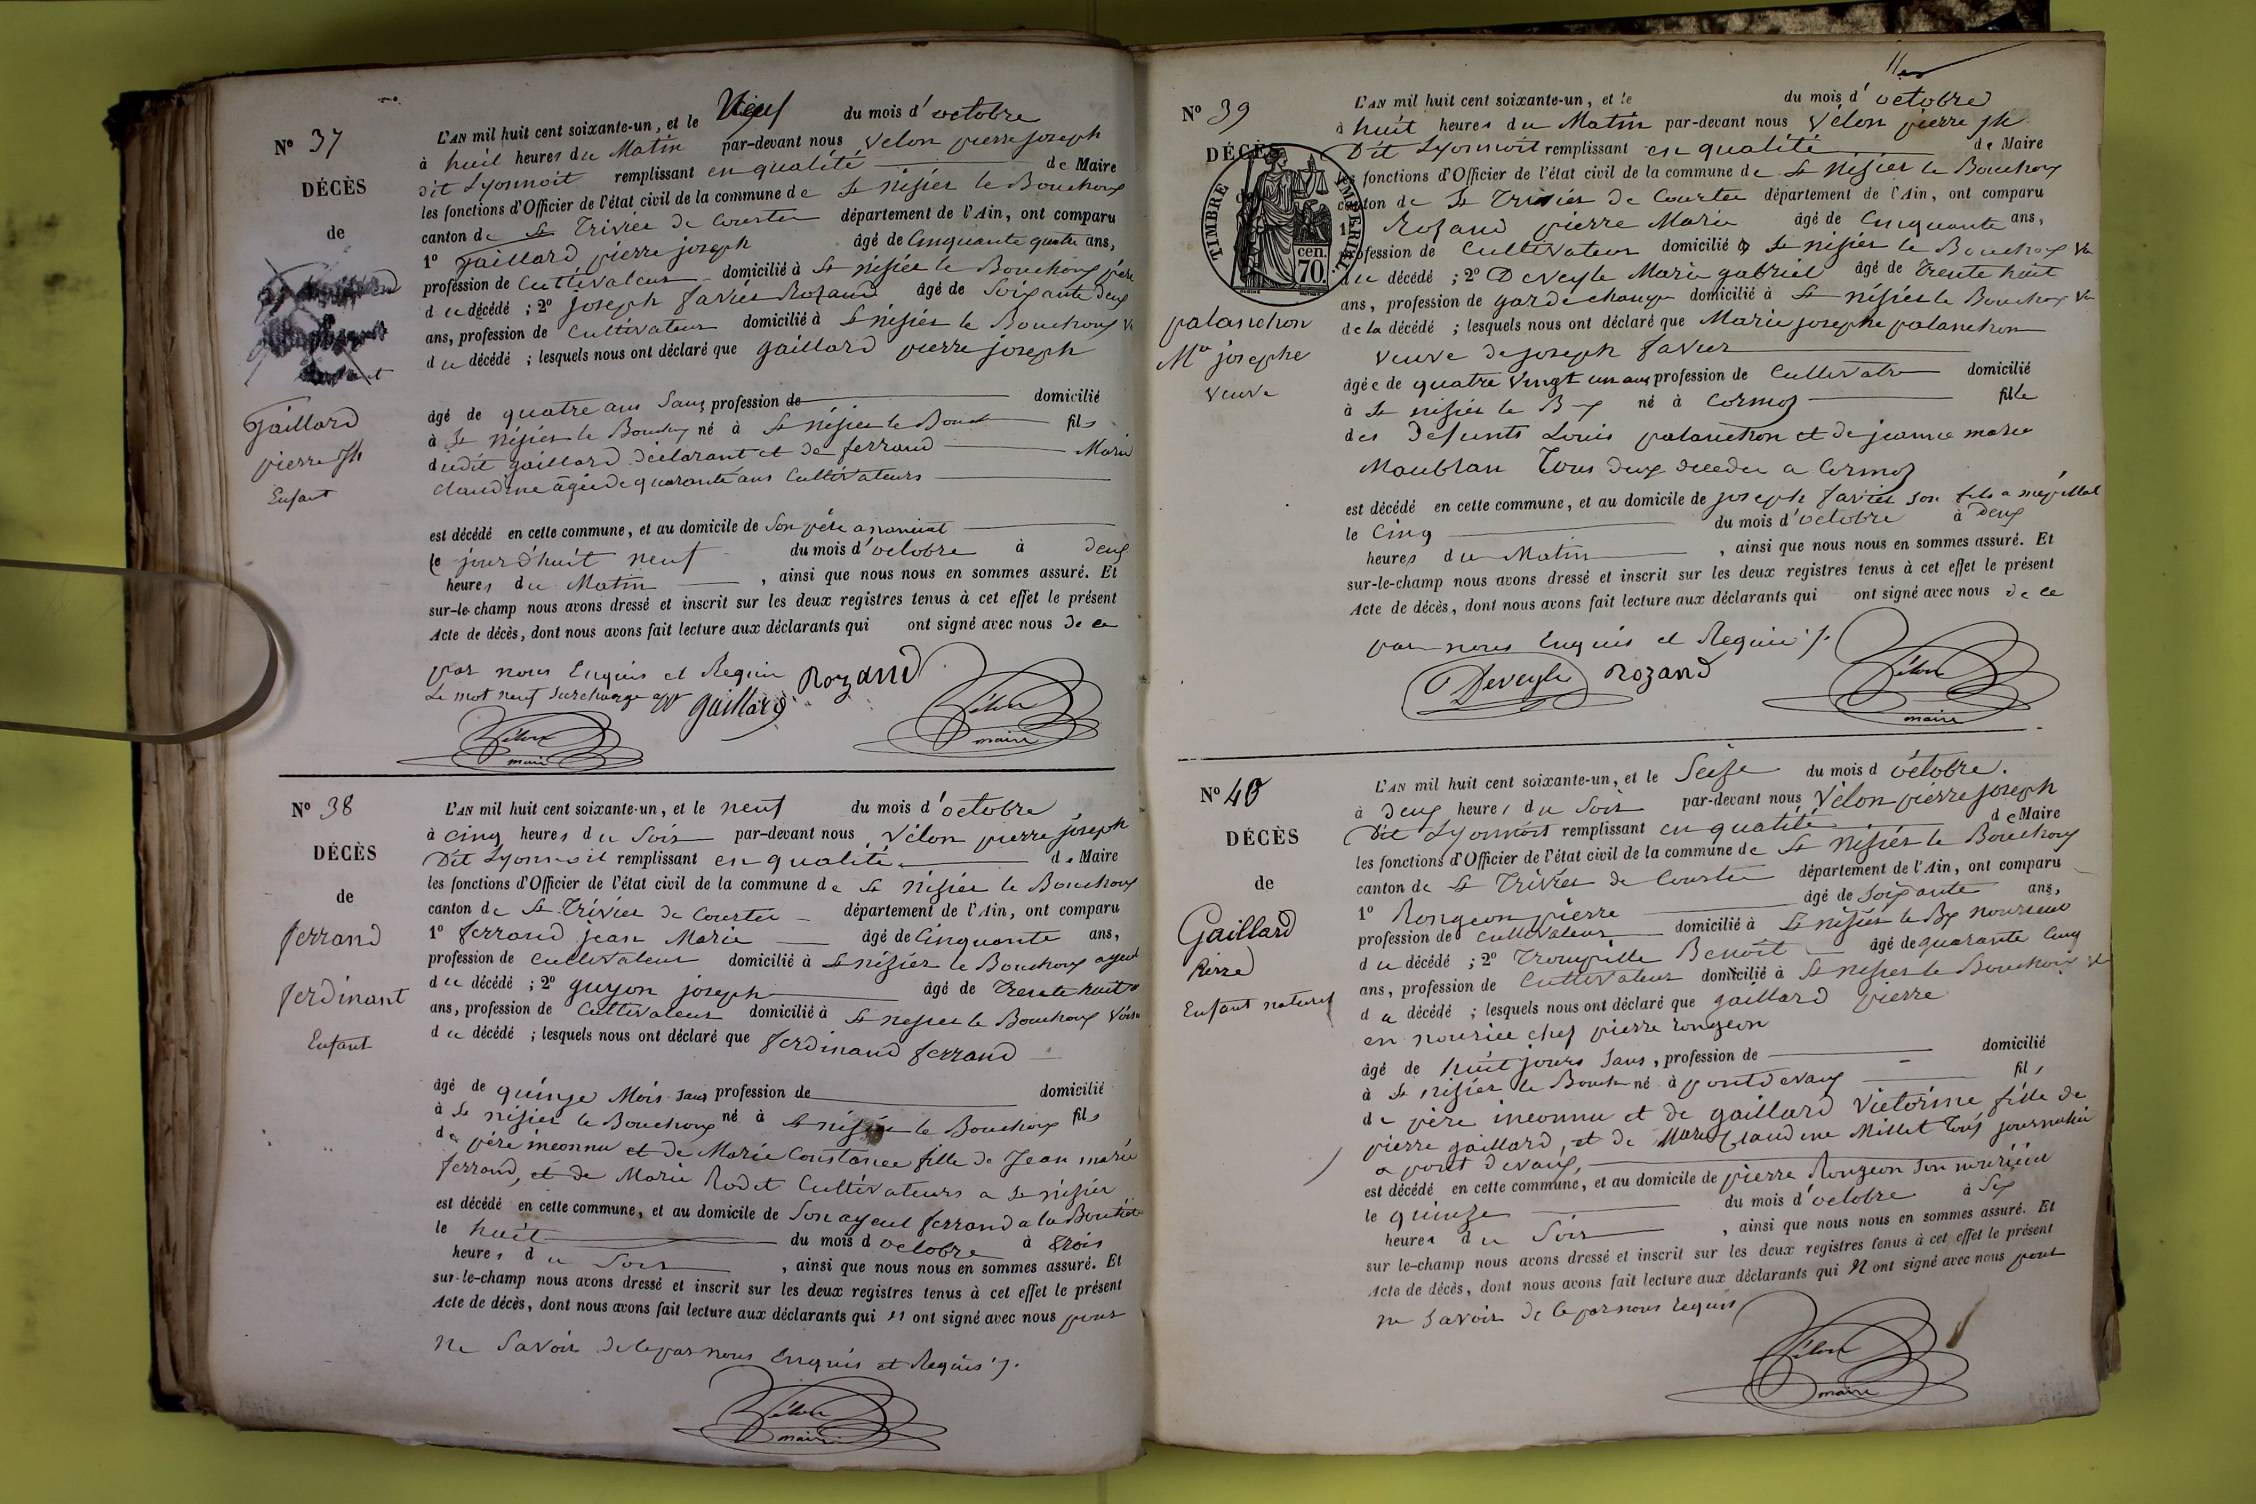 N° 37
DÉCÈS
de
Gaillard
pierre Jh
Enfant
L'AN mil huit cent soixante-un, et le Neuf du mois d'octobre
à huit heures du Matin par-devant nous Velon pierre joseph
dit Lyonnoit remplissant en qualité de Maire
les fonctions d'Officier de l'état civil de la commune de St nisier le Bouchoux
canton de St Trivier de Courtes département de l'Ain, ont comparu
1° gaillard pierre joseph âgé de Cinquante quatre ans,
profession de Cultivateur domicilié à St nisier le Bouchoux père
du décédé ; 2° joseph favier Rozand âgé de Soixante deux
ans, profession de Cultivateur domicilié à St nisier le Bouchoux
du décédé ; lesquels nous ont déclaré que gaillard pierre joseph
âgé de quatre ans Sans profession de domicilié
à St nisier le Bouchoux né à St nisier le Bouch fils
dudit gaillard déclarant et de ferrand Marie
claudine âgée de quarante ans Cultivateurs
est décédé en cette commune, et au domicile de Son père
le jourd'huit neuf du mois d'octobre à deux
heures du Matin , ainsi que nous nous en sommes assuré. Et
sur-le-champ nous avons dressé et inscrit sur les deux registres tenus à cet effet le présent
Acte de décès, dont nous avons fait lecture aux déclarants qui ont signé avec nous de ce
par nous Enquis et Requis Rozand
Le mot neuf surchargé app gaillard Vélon maire
Vélon maire
N° 38
DÉCÈS
de
ferrand
ferdinant
Enfant
L'AN mil huit cent soixante-un, et le neuf du mois d'octobre
à cinq heures du Soir par-devant nous Vélon pierre joseph
Dit Lyonnoit remplissant en qualité de Maire
les fonctions d'Officier de l'état civil de la commune de St nisier le Bouchoux
canton de St Trivier de Courtes département de l'Ain, ont comparu
1° ferrand jean Marie âgé de Cinquante ans,
profession de Cultivateur domicilié à St nizier le Bouchoux ayeul
du décédé ; 2° guyon joseph âgé de trente huit
ans, profession de Cultivateur domicilié à St nisier le Bouchoux Voisin
du décédé ; lesquels nous ont déclaré que ferdinand ferrand
âgé de quinze Mois sans profession de domicilié
à St nisier le Bouchoux né à St nisier le Bouchoux fils
de père inconnu et de Marie Constance fille de Jean marie
ferrand, et de Marie Rodet Cultivateurs a St nisier
est décédé en cette commune, et au domicile de Son ayeul ferrand a la
le huit du mois d octobre à trois
heures du Soir , ainsi que nous nous en sommes assuré. Et
sur-le-champ nous avons dressé et inscrit sur les deux registres tenus à cet effet le présent
Acte de décès, dont nous avons fait lecture aux déclarants qui n ont signé avec nous pour
ne Savoir de ce par nous Enquis et Requis
Vélon maire
N° 39
DÉCÈS
TIMBRE IMPERIAL
70 cen.
palanchon
Mie josephe
veuve
L'AN mil huit cent soixante-un, et le du mois d'octobre
à huit heures du Matin par-devant nous Vélon pierre jh
Dit Lyonnoit remplissant en qualité de Maire
les fonctions d'Officier de l'état civil de la commune de St Nisier le Bouchoux
canton de St Trivier de Courtes département de l'Ain, ont comparu
1° Rozand pierre Marie âgé de Cinquante ans,
profession de Cultivateur domicilié à St nisier le Bouchoux
du décédé ; 2° Deveyle Marie gabriel âgé de Trente huit
ans, profession de garde domicilié à St nisier le Bouchoux
de la décédé ; lesquels nous ont déclaré que Marie josephe palanchon
veuve de joseph favier
âgée de quatre vingt un ans profession de Cultivatr domicilié
à St nisier le B x né à Cormoz fille
des Defunts Louis palanchon et de jeanne marie
Maublan Tous deux décédés a Cormoz
est décédé en cette commune, et au domicile de joseph favier son fils a
le Cinq du mois d'octobre à Deux
heures du Matin , ainsi que nous nous en sommes assuré. Et
sur-le-champ nous avons dressé et inscrit sur les deux registres tenus à cet effet le présent
Acte de décès, dont nous avons fait lecture aux déclarants qui ont signé avec nous de ce
par nous Enquis et Requis
Deveyle Rozand Vélon maire
N° 40
DÉCÈS
de
Gaillard
Pierre
Enfant naturel
L'AN mil huit cent soixante-un, et le Seize du mois d octobre.
à deux heures du Soir par-devant nous Vélon pierre joseph
Dit Lyonnois remplissant en qualité de Maire
les fonctions d'Officier de l'état civil de la commune de St Nisier le Bouchoux
canton de St Trivier de Courtes département de l'Ain, ont comparu
1° Rongeon pierre âgé de Soixante ans,
profession de Cultivateur domicilié à St nisier le Bx
du décédé ; 2° Trompille Benoit âgé de quarante Cinq
ans, profession de Cultivateur domicilié à St nisier le Bouchoux
du décédé ; lesquels nous ont déclaré que gaillard pierre
en nourice chez pierre rongeon
âgé de huit jours Sans, profession de domicilié
à St nisier le Bouch né à pontdevaux fils
de père inconnu et de gaillard Victorine fille de
pierre gaillard, et de Marie Claudine Millet Tous journalier
a pont devaux,
est décédé en cette commune, et au domicile de pierre Rongeon Son
le quinze du mois d'octobre à Six
heures du Soir , ainsi que nous nous en sommes assuré. Et
sur le-champ nous avons dressé et inscrit sur les deux registres tenus à cet effet le présent
Acte de décès, dont nous avons fait lecture aux déclarants qui N ont signé avec nous pour
ne Savoir de ce par nous Enquis
Vélon maire